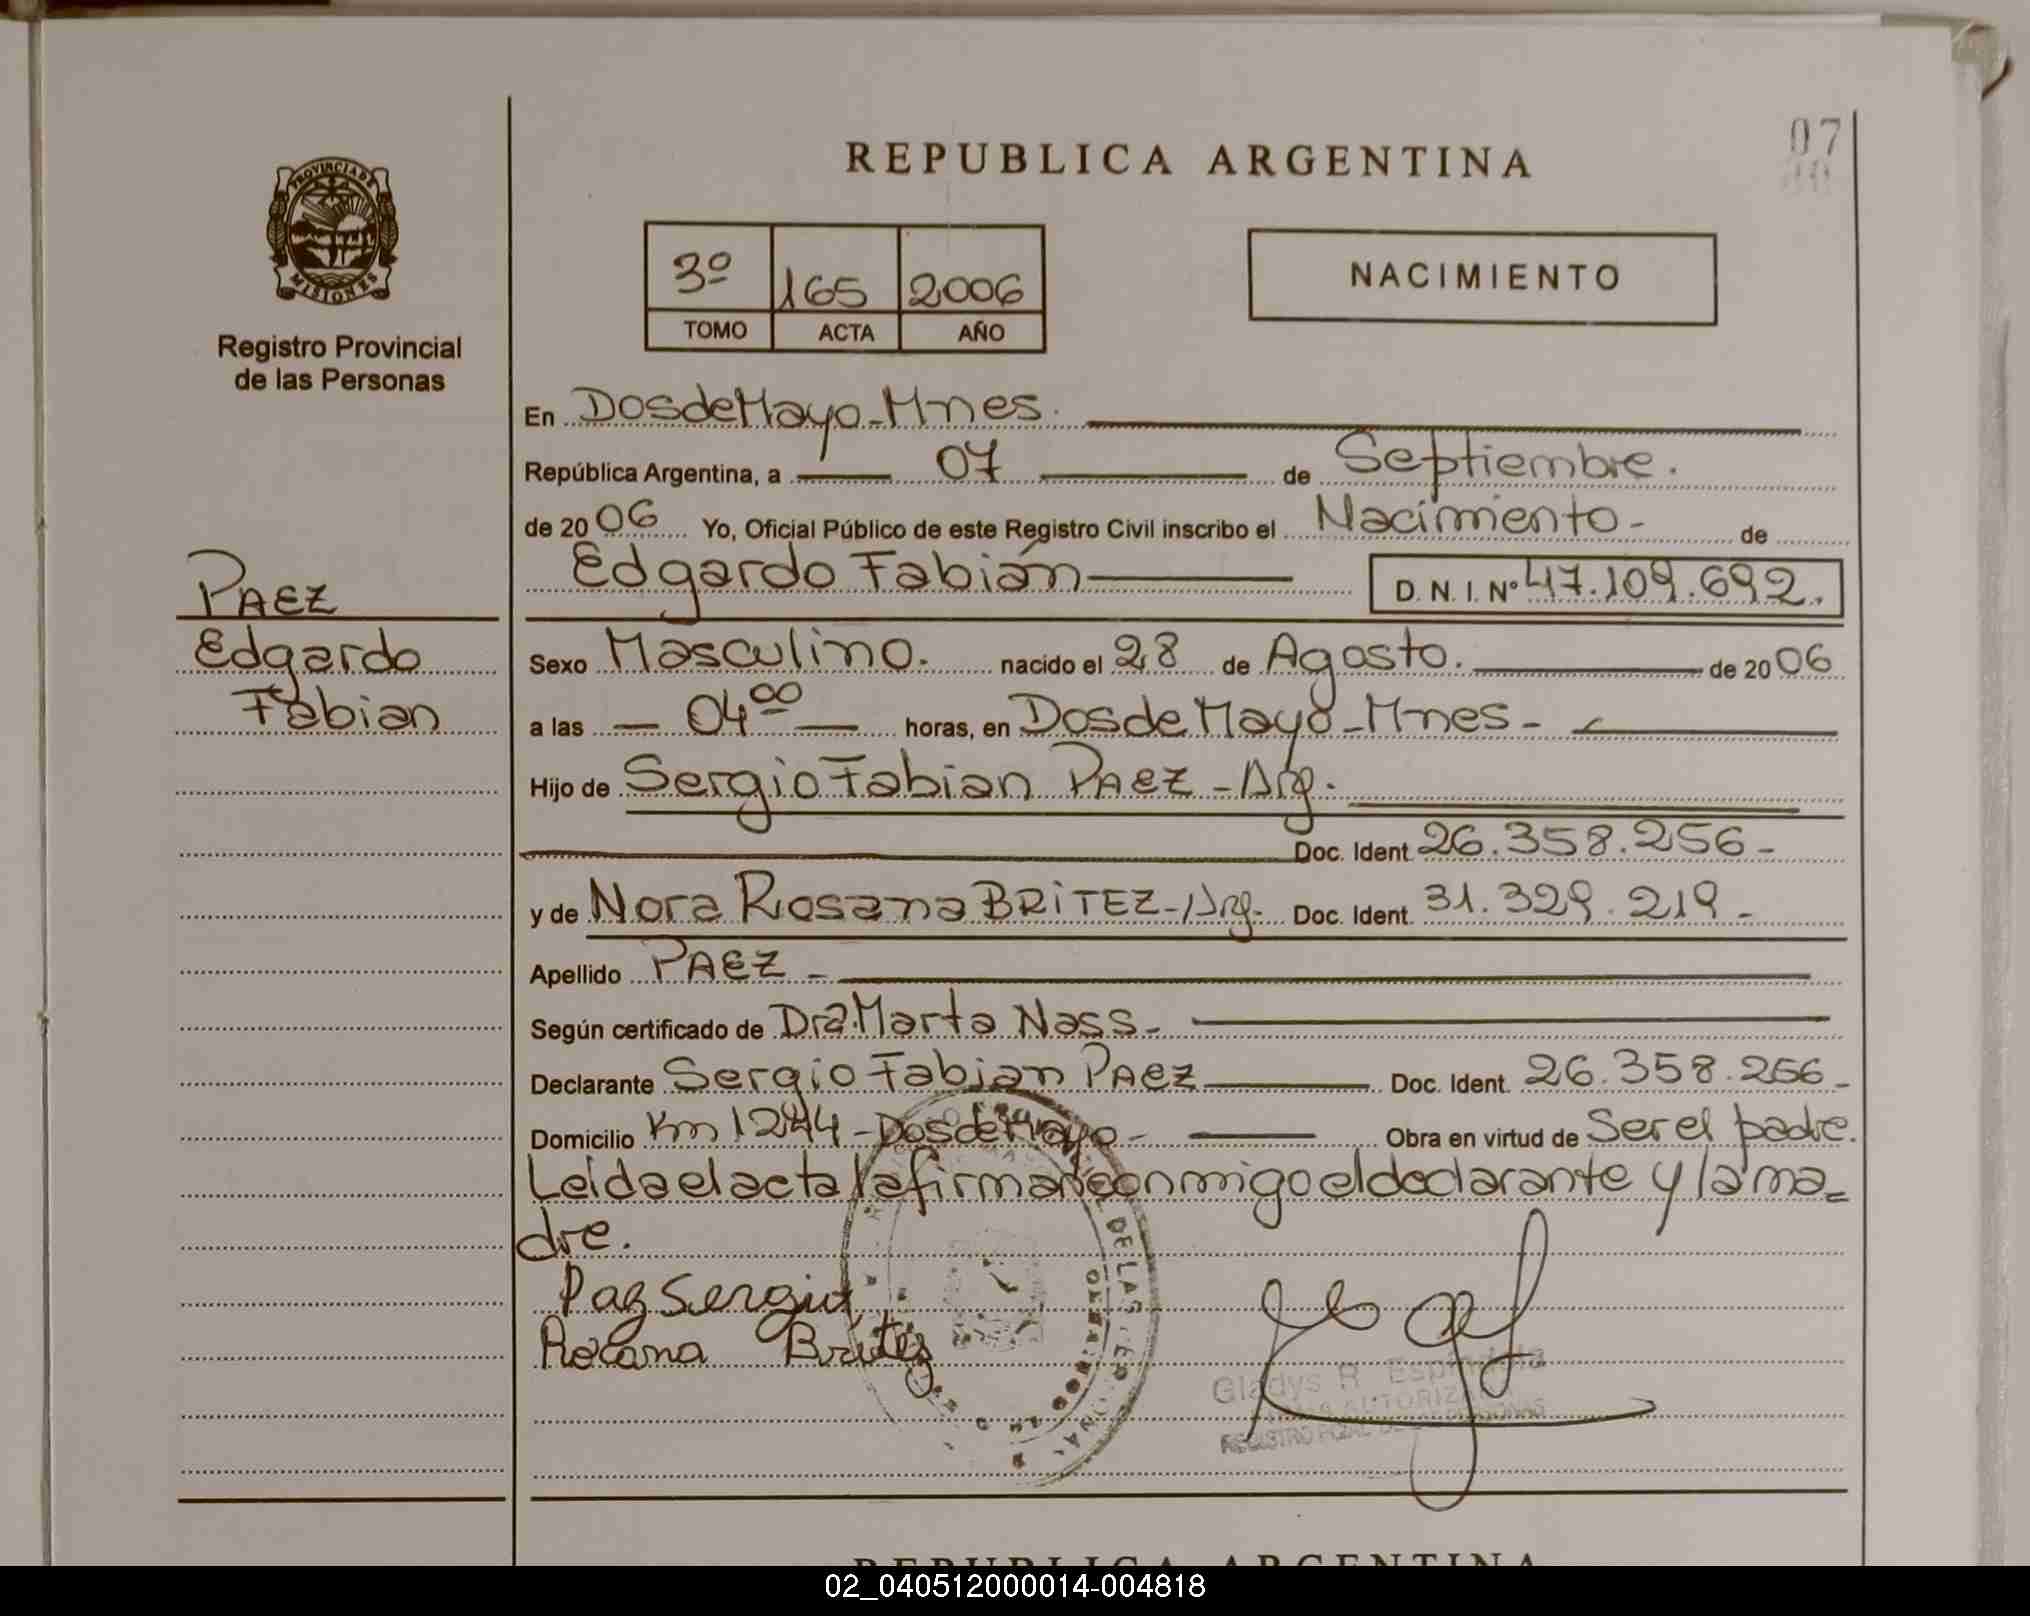 REPUBLICA ARGENTINA
07
PROVINCIA DE
MISIONES
Registro Provincial
de las Personas
3º 165 2006
TOMO ACTA AÑO
NACIMIENTO
En Dos de Mayo - Mnes.
República Argentina, a 07 de Septiembre.
de 2006 Yo, Oficial Público de este Registro Civil inscribo el Nacimiento - de
Edgardo Fabián D. N. I. Nº 47.109.692.
PAEZ
Edgardo
Fabian
Sexo Masculino. nacido el 28 de Agosto. de 2006
a las 04⁰⁰ horas, en Dos de Mayo - Mnes -
Hijo de Sergio Fabian PAEZ - Arg.
Doc. Ident. 26.358.256 -
y de Nora Rosana BRITEZ - Arg. - Doc. Ident. 31.329.219 -
Apellido PAEZ -
Según certificado de Dra. Marta Nass -
Declarante Sergio Fabian PAEZ Doc. Ident. 26.358.256 -
Domicilio Km 1244 - Dos de Mayo - Obra en virtud de Ser el padre.
Leida el acta la firman conmigo el declarante y la ma=
dre.
Paez Sergio
Rosana Britez
Gladys R. Espindola
REPUBLICA ARGENTINA
02_040512000014-004818